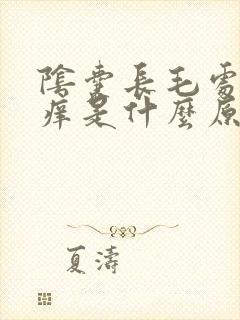 陰囊長毛處
痒是什麼原
夏濤